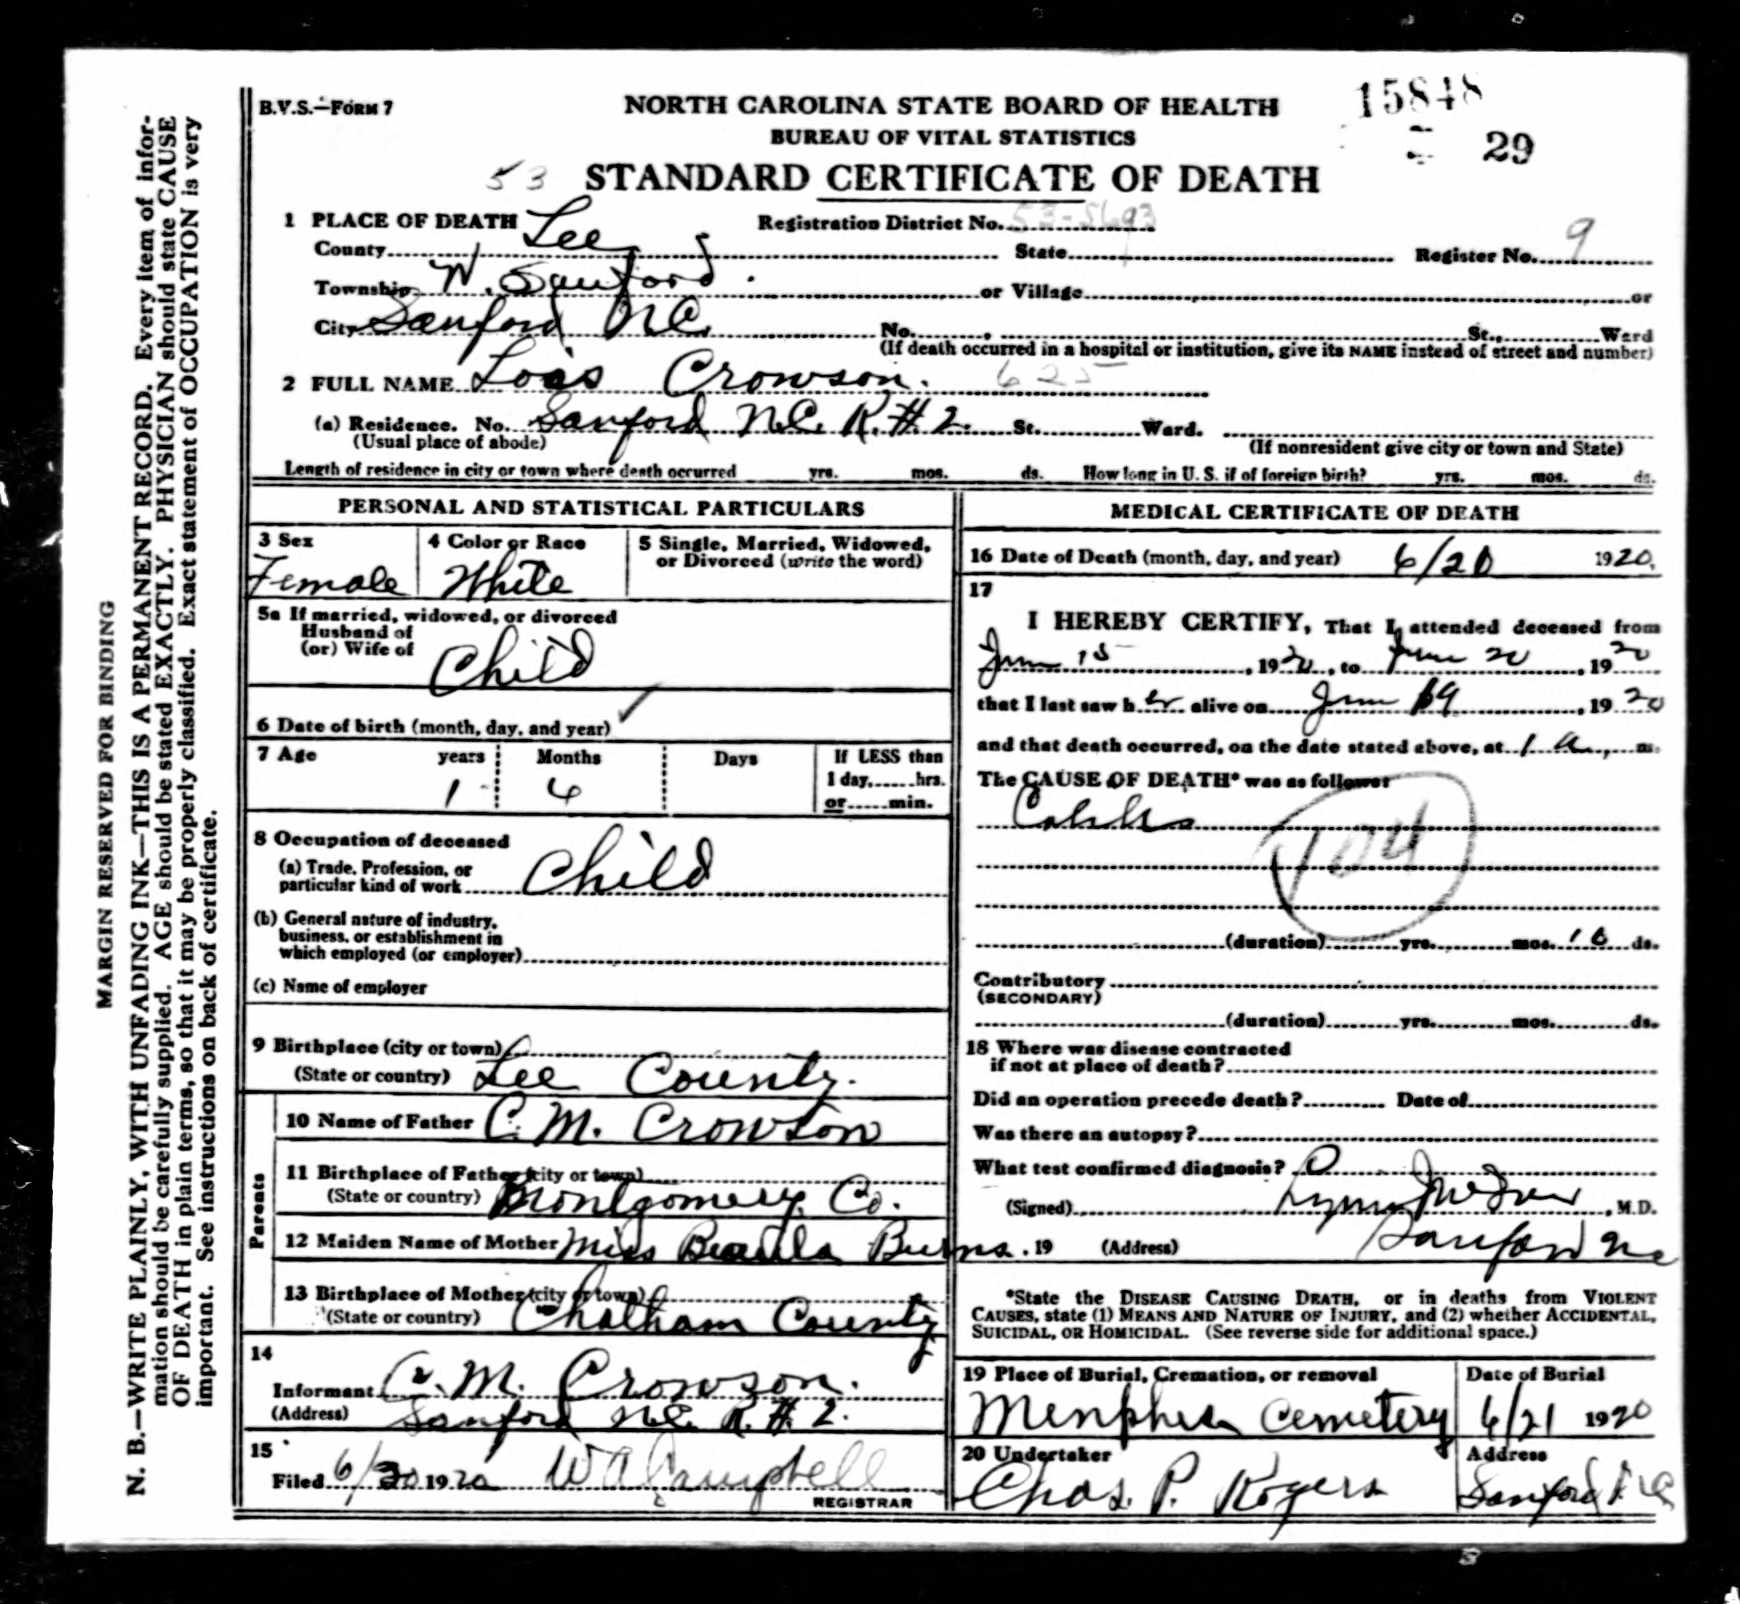 15848
B.V.S.—FORM 7
NORTH CAROLINA STATE BOARD OF HEALTH
BUREAU OF VITAL STATISTICS
29
53 STANDARD CERTIFICATE OF DEATH
1 PLACE OF DEATH Registration District No. 53-5693
County Lee State Register No. 9
Township W. Sanford or Village or
City Sanford N.C. No. St., Ward
(If death occurred in a hospital or institution, give its NAME instead of street and number)
2 FULL NAME Lois Crowson. 625
(a) Residence. No. Sanford N.C. R.#2. St. Ward.
(Usual place of abode) (If nonresident give city or town and State)
Length of residence in city or town where death occurred yrs. mos. ds. How long in U. S. if of foreign birth? yrs. mos. ds.
PERSONAL AND STATISTICAL PARTICULARS
3 Sex 4 Color or Race 5 Single, Married, Widowed,
or Divorced (write the word)
Female White
5a If married, widowed, or divorced
Husband of
(or) Wife of Child
6 Date of birth (month, day, and year) ✓
7 Age years Months Days If LESS than
1 day,......hrs.
or......min.
1 6
8 Occupation of deceased
(a) Trade, Profession, or
particular kind of work Child
(b) General nature of industry,
business, or establishment in
which employed (or employer)
(c) Name of employer
9 Birthplace (city or town)
(State or country) Lee County.
Parents
10 Name of Father C. M. Crowson
11 Birthplace of Father (city or town)
(State or country) Montgomery Co.
12 Maiden Name of Mother Miss Beaula Burns
13 Birthplace of Mother (city or town)
(State or country) Chatham County
14
Informant C. M. Crowson.
(Address) Sanford N.C. R.#2.
15
Filed 6/30 1920 W A Campbell
REGISTRAR
MEDICAL CERTIFICATE OF DEATH
16 Date of Death (month, day, and year) 6/20 1920.
17
I HEREBY CERTIFY, That I attended deceased from
June 15, 1920, to June 20, 1920
that I last saw her alive on June 19, 1920
and that death occurred, on the date stated above, at 1 a., m.
The CAUSE OF DEATH* was as follows:
Colitis
104
(duration) yrs. mos. 10 ds.
Contributory
(SECONDARY)
(duration) yrs. mos. ds.
18 Where was disease contracted
if not at place of death?
Did an operation precede death? Date of
Was there an autopsy?
What test confirmed diagnosis? O
(Signed) Lynn McIver, M.D.
, 19 (Address) Sanford NC
*State the DISEASE CAUSING DEATH, or in deaths from VIOLENT
CAUSES, state (1) MEANS AND NATURE OF INJURY, and (2) whether ACCIDENTAL,
SUICIDAL, OR HOMICIDAL. (See reverse side for additional space.)
19 Place of Burial, Cremation, or removal Date of Burial
Cemetery 6/21 1920
20 Undertaker Address
Chas. P. Rogers Sanford N.C.
MARGIN RESERVED FOR BINDING
N. B.—WRITE PLAINLY, WITH UNFADING INK—THIS IS A PERMANENT RECORD. Every item of infor-
mation should be carefully supplied. AGE should be stated EXACTLY. PHYSICIAN should state CAUSE
OF DEATH in plain terms, so that it may be properly classified. Exact statement of OCCUPATION is very
important. See instructions on back of certificate.